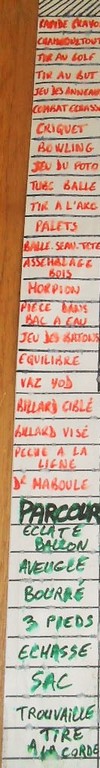 RAPIDE CRAYO
CHAMBOULTOUT
TIR AU GOLF
TIR AU BUT
JEU DES ANNEAU
COMBAT ECHASS
CRIQUET
BOWLING
JEU DU POTO
TUBE BALLE
TIR A L'ARC
PALETS
BALLE. SEAU. TETE
ASSEMBLAGE
BOIS
MORPION
PIECE DANS
BAC A EAU
JEU DES BATONS
EQUILIBRE
VAZ YOD
BILLARD CIBLÉ
BILLARD VISÉ
PECHE A LA
LIGNE
Dr MABOULE
PARCOUR
ECLATE
BALLON
AVEUGLE
BOURRÉ
3 PIEDS
ECHASSE
SAC
TROUVAILLE
TIRE
A LA CORDE